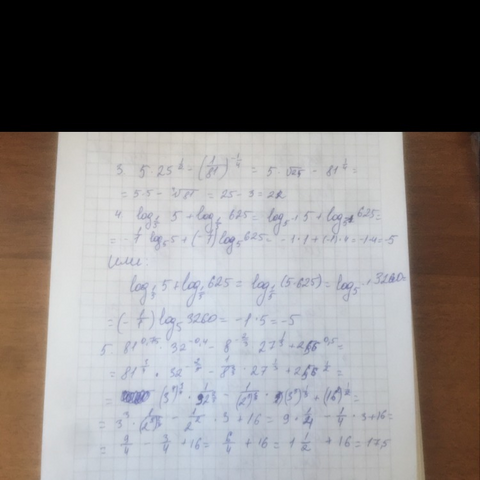 3 5·25^{1/2} - (1/81)^{-1/4} = 5·√25 - 81^{1/4} =
= 5·5 - ⁴√81 = 25 - 3 = 22
4 log_{1/5} 5 + log_{1/5} 625 = log_{5^{-1}} 5 + log_{5^{-1}} 625 =
= -1/1 log_5 5 + (-1/1) log_5 625 = -1·1 + (-1)·4 = -1-4 = -5
Или:
log_{1/5} 5 + log_{1/5} 625 = log_{1/5} (5·625) = log_{5^{-1}} 3260 =
= (-1/1) log_5 3260 = -1·5 = -5
5. 81^{0,75} · 32^{-0,4} - 8^{-2/3} · 27^{1/3} + 256^{0,5} =
= 81^{3/4} · 32^{-2/5} - · 27^{1/3} + 256^{1/2} =
= 3^3 · - 1/2^2 · 3 + 16 = 9 · 1/4 - 1/4 · 3 + 16 =
= 9/4 - 3/4 + 16 = 6/4 + 16 = 1 1/2 + 16 = 17,5